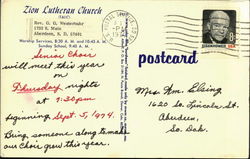 Zion Lutheran Church
(TALC)
Rev. G. G. Westermuhr
1732 S. Main
Aberdeen, S. D. 57401
Worship Services, 8:30 A. M. and 10:45 A. M.
Sunday School, 9:45 A. M.
EISENHOWER USA
postcard
Senior Choir
will meet this year
on
Thursday nights
at 7:30pm
beginning Sept. 5, 1974.
Bring someone along & make
our Choir grow this year.
Mrs. Wm. Elsing
1620 So. Lincoln St.
Aberdeen,
So. Dak.